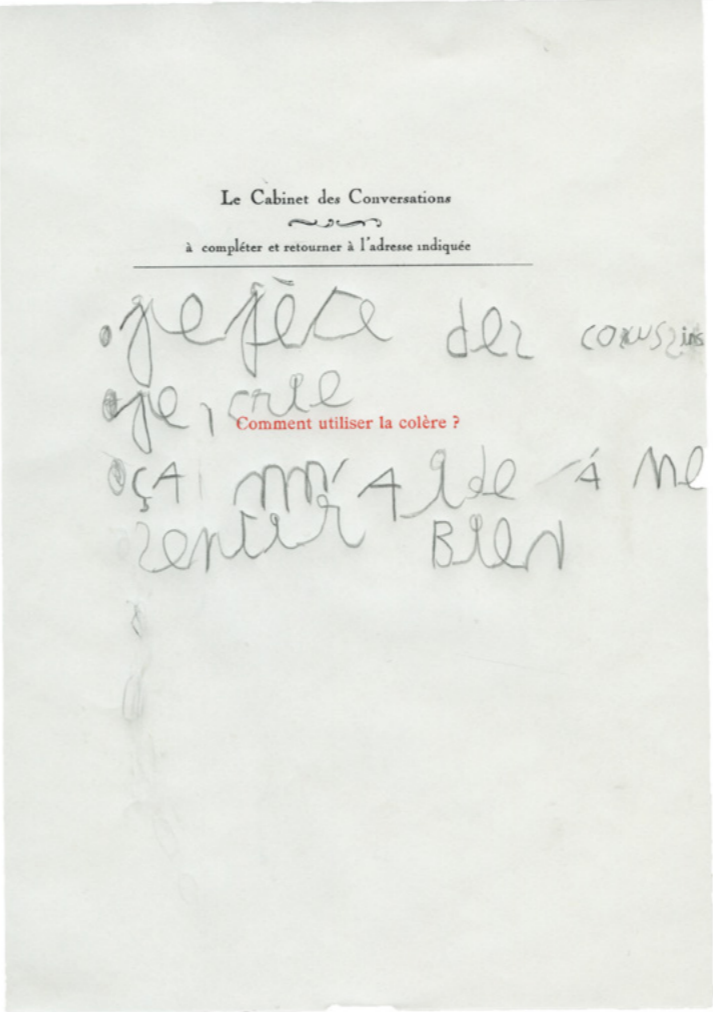 Le Cabinet des Conversations
à compléter et retourner à l'adresse indiquée
je jète des coussins
je crie
Comment utiliser la colère ?
ça m'aide à me
sentir BIEN